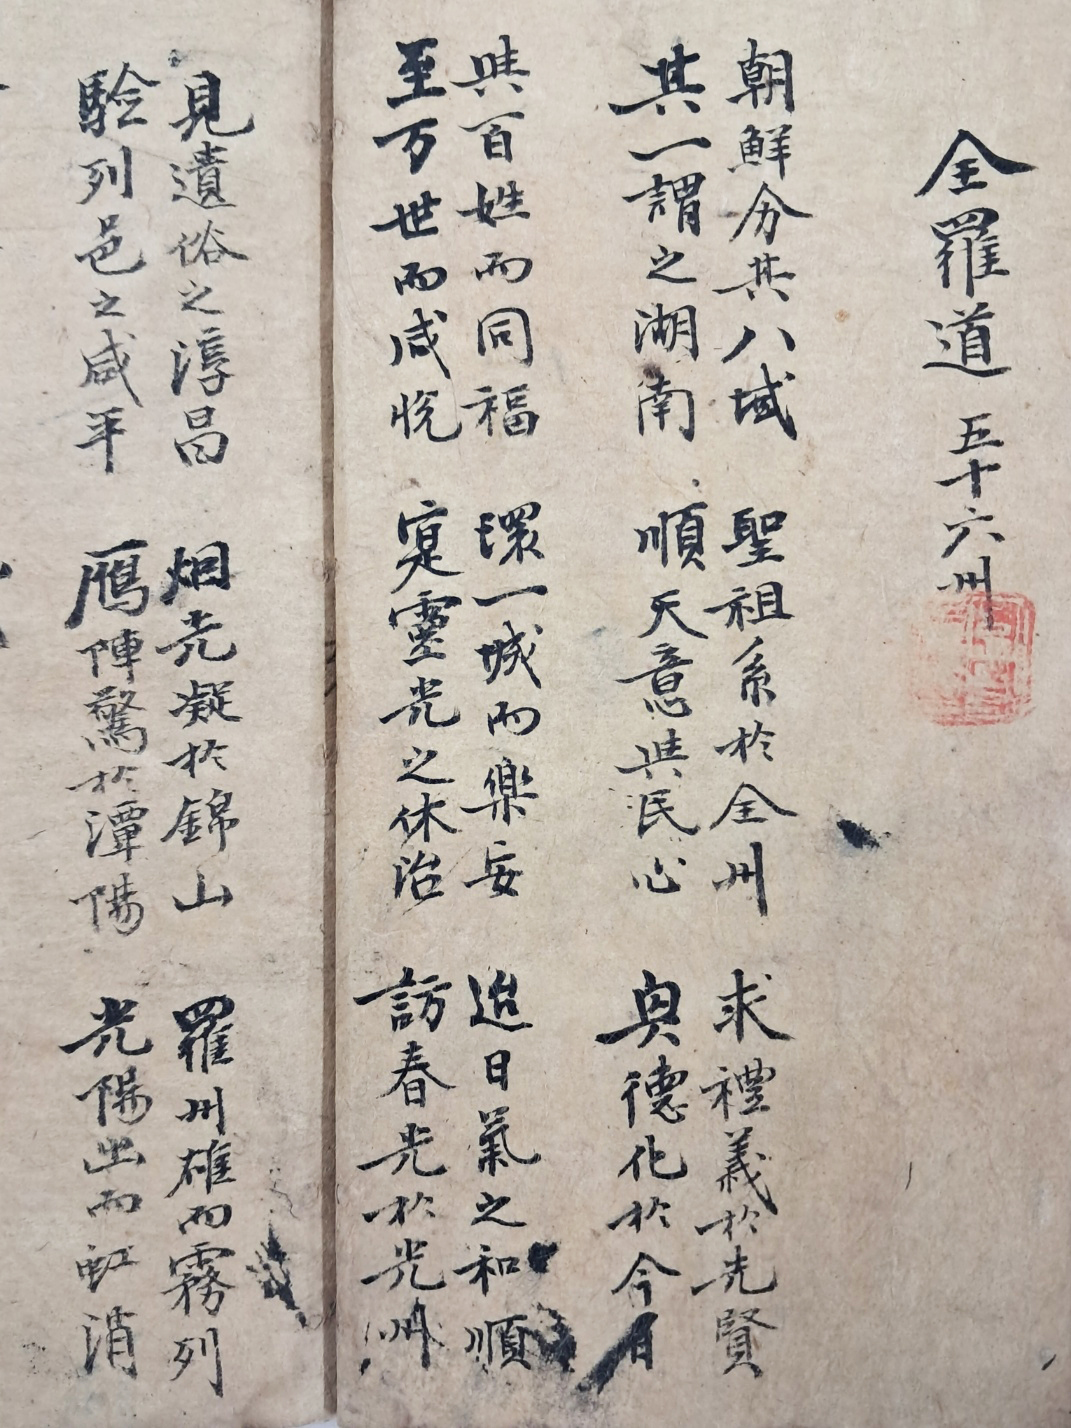 全羅道 五十六州
朝鮮分其八域 聖祖系於全州 求禮義於先賢
其一謂之湖南 順天意與民心 與德化於今日
與百姓而同福 環一城而樂安 迨日氣之和順
至万世而咸悅 寔靈光之休治 訪春光於光州
見遺俗之淳昌 烟光凝於錦山 羅州雄而霧列
驗列邑之咸平 鴈陣驚於潭陽 光陽出而虹消